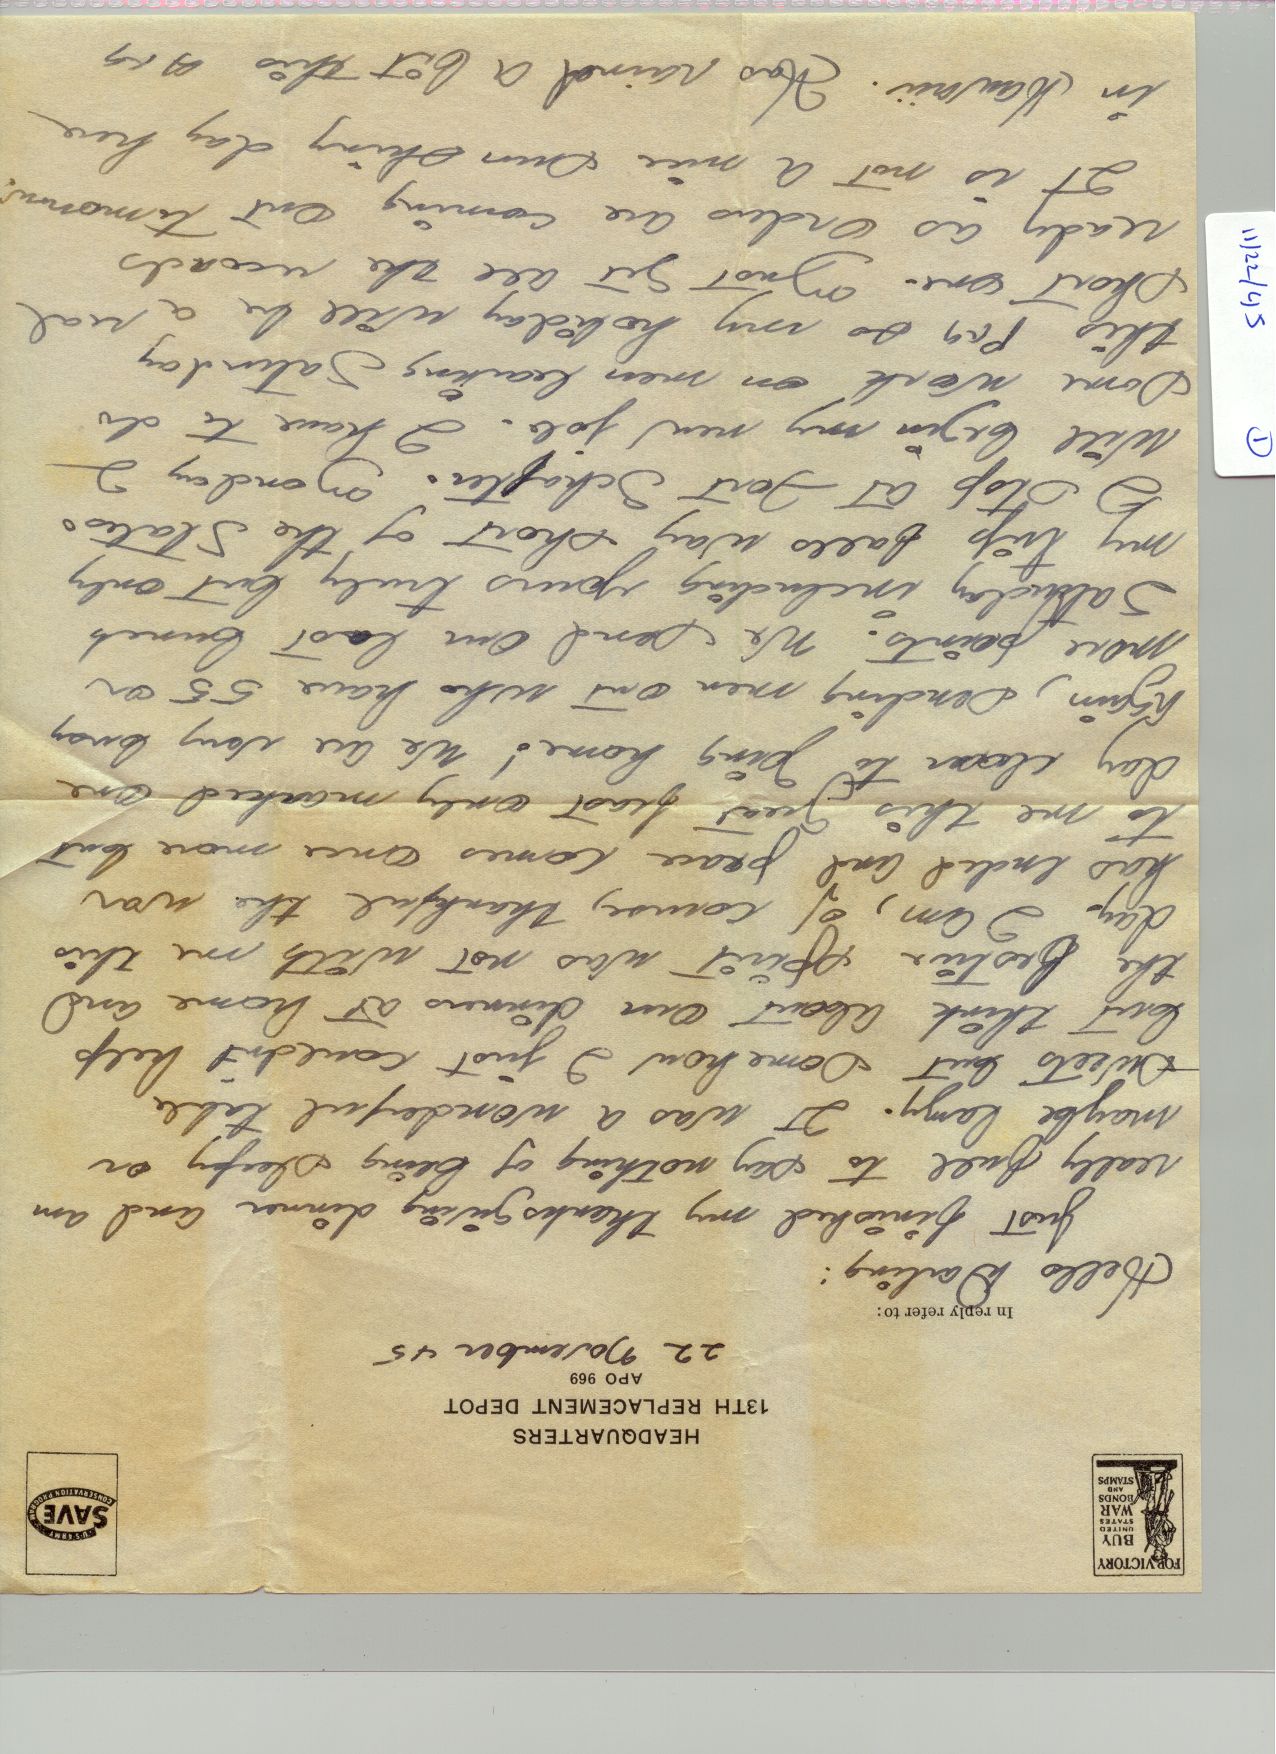 FOR VICTORY
BUY
UNITED
STATES
WAR
BONDS
AND
STAMPS
U.S. ARMY
SAVE
CONSERVATION PROGRAM
HEADQUARTERS
13TH REPLACEMENT DEPOT
APO 969
22 November 45
In reply refer to:
Hello Darling:
Just finished my thanksgiving dinner and am
really full to say nothing of being sleepy or
maybe lazy. It was a wonderful table
sweets but somehow I just couldn't help
but think about our dinners at home and
the festive spirit was not with me this
day. I am, of course, thankful the war
has ended and peace comes once more but
to me this great feast only marked one
day closer to going home! We are very busy
again, sending men out who have 55 or
more points. We send our last bunch
Saturday including yours truly but only
my trip falls way short of the States.
I stop at Fort Schafter. Monday I
will begin my new job. I have to do
some work on men leaving Saturday
this P.M. so my holiday will be a real
short one. Must get all the records
ready as orders are coming out tomorrow.
It is not a nice sun shiny day here
in Hawaii. Has rained a bit this
11/22/45 1